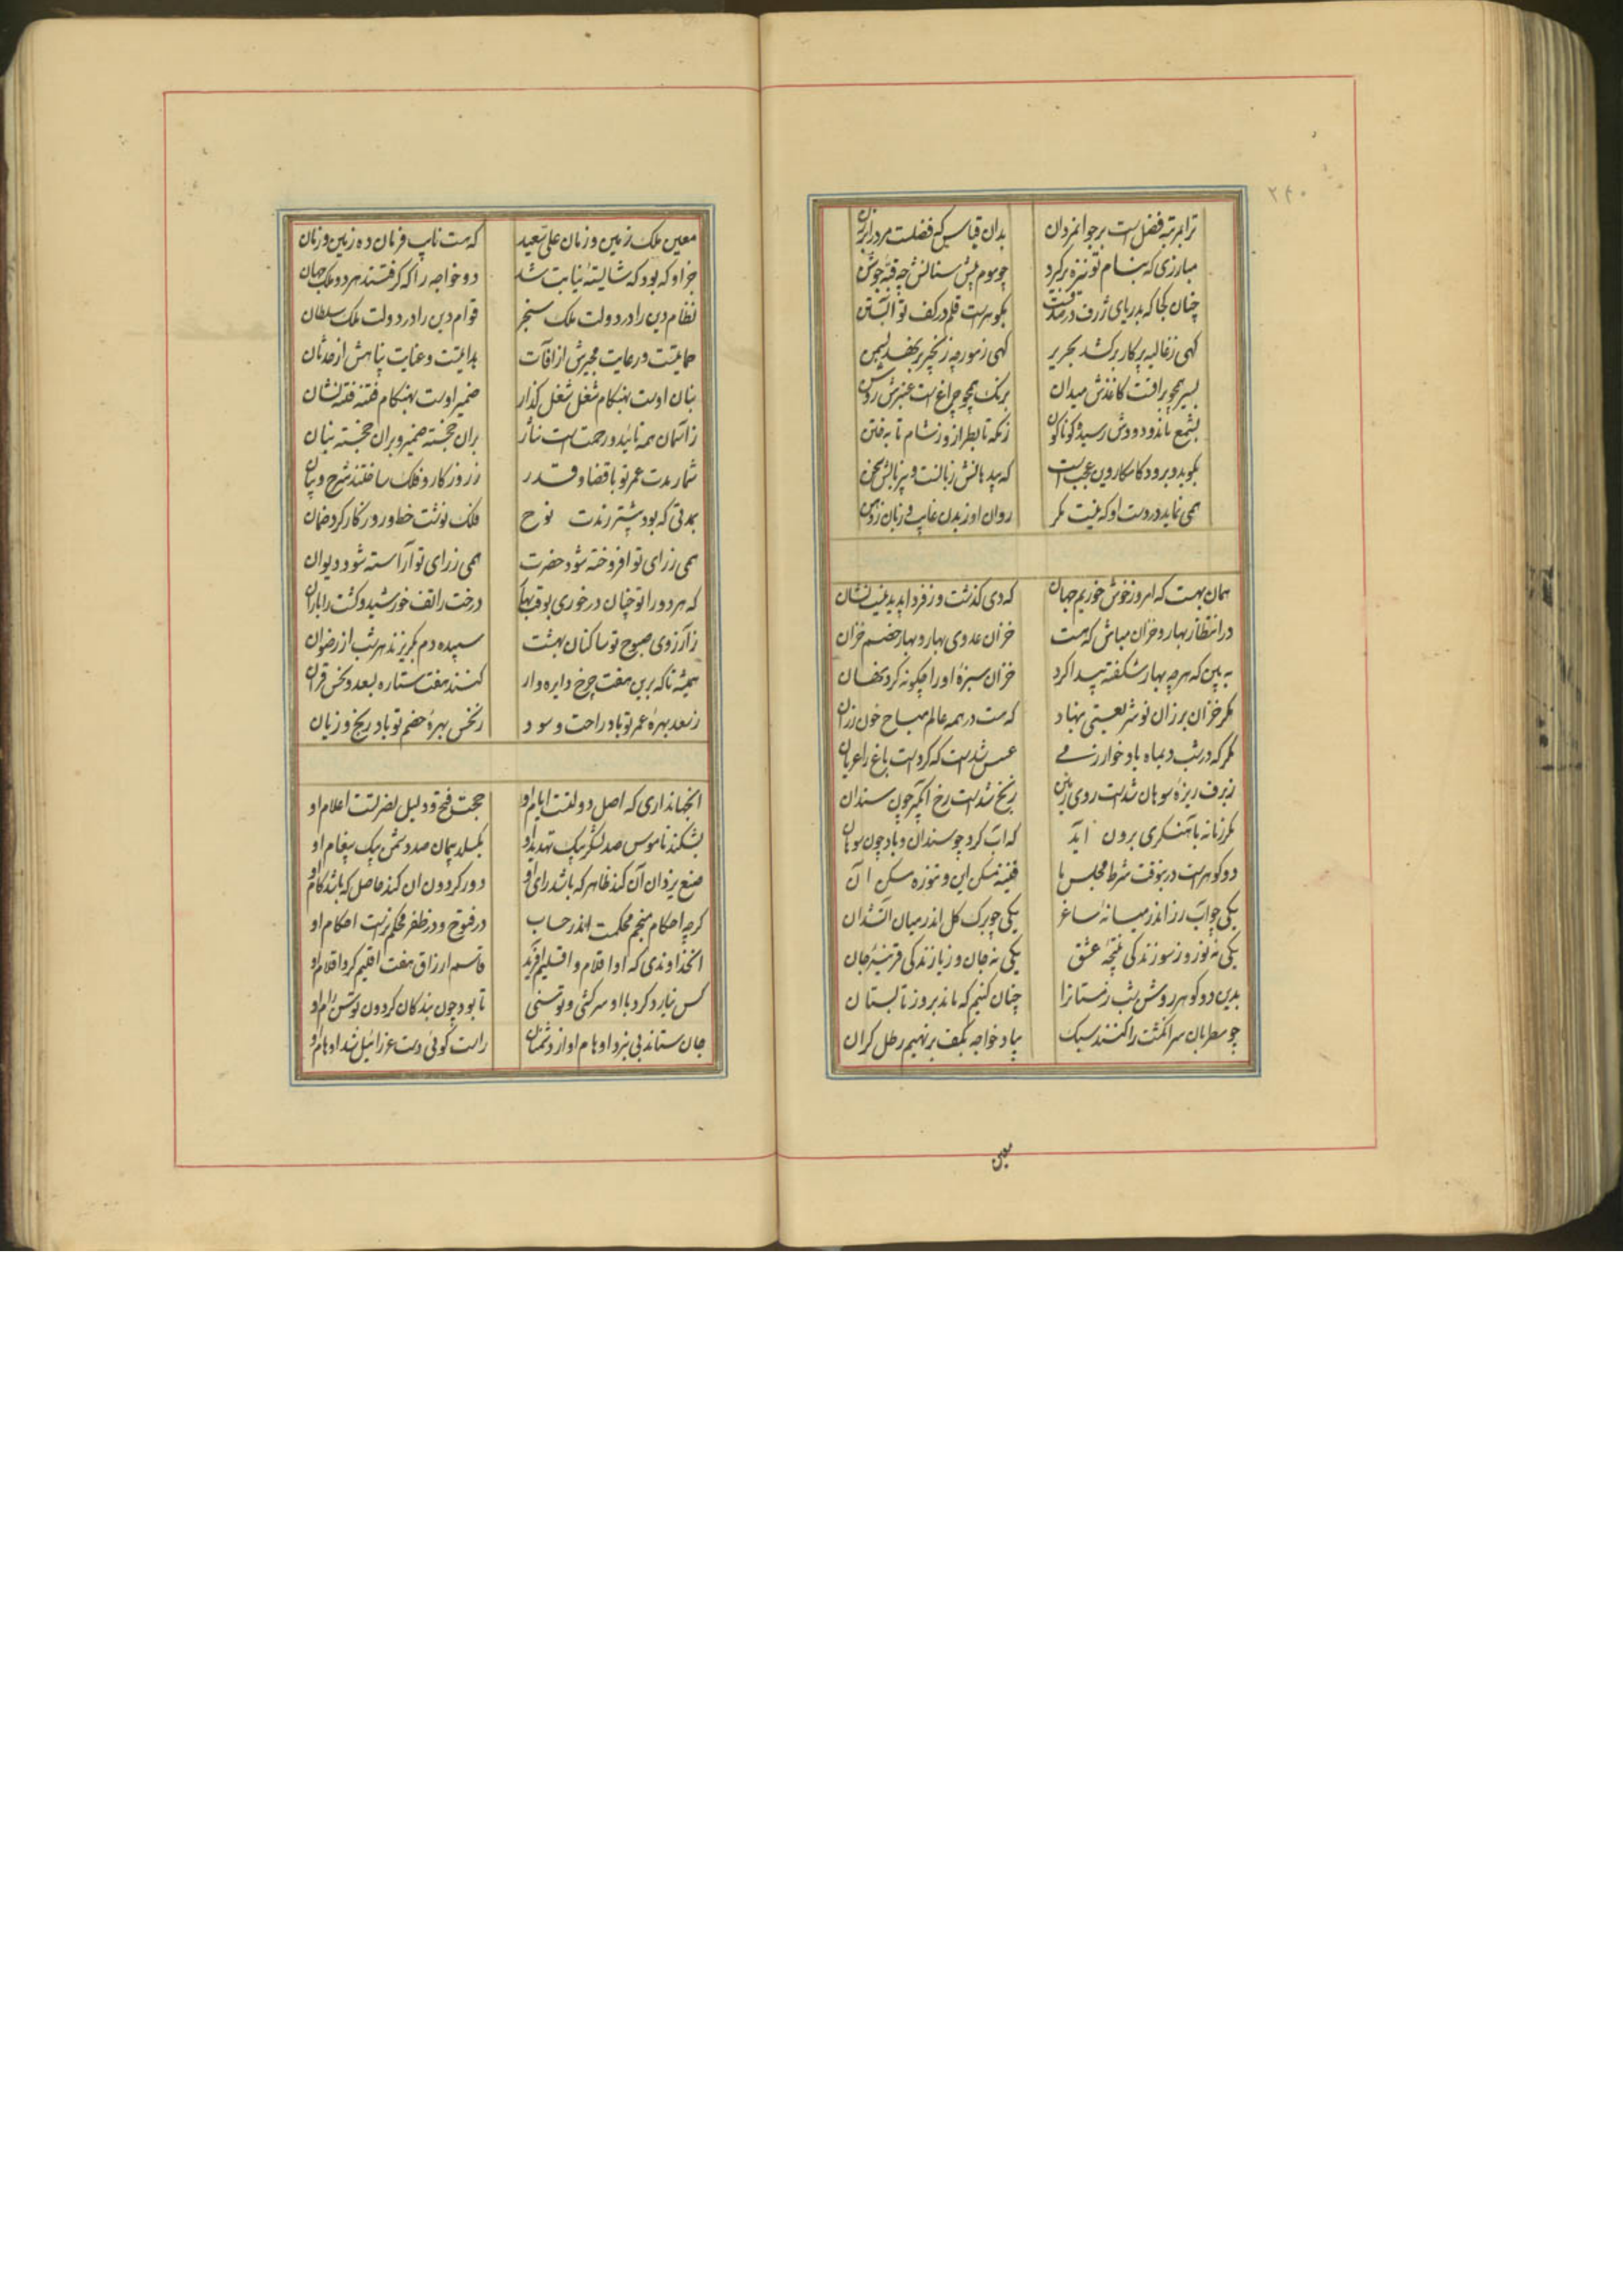 ۲۴۰
ترا مرتبه فضل است بر جوانمردان بدان قیاس که فضلست مرد را بر زن
مبارزی که بنام تو نیزه برگیرد چو موم پیش سنانش چه قبه جوشن
چنان کجا که بدریای ژرف در صدفست بگوهرست قلم در کف تو آبستن
گهی ز غالیه پرکار برکشد بحریر گهی ز مورچه زنجیر بر نهد بسمن
بسیر همچو براقست کاغذش میدان برنک همچو چراغ است عنبرش روغن
بشمع ماند و دودش رسید کوناکون ز مکه تا بطراز و ز شام تا به ختن
بکوید و برود کامکار وین عجب است که بیدهانش زبانست و بیزبانش سخن
همی نماید در دست او که نیست مکر روان او ز بدن غایب و زبان ز دهن
همان بهست که امروز خوش خوریم جهان که دی کذشت و ز فردا پدید نیست نشان
در انتظار بهار و خزان مباش که هست خزان عدوی بهار و بهار خصم خزان
به بین که هر چه بهار شکفته پیدا کرد خزان سبزه او را چکونه کرد نهان
مکر خزان بر زان نو شریعتی بنهاد که هست در همه عالم مباح خون رزان
مکر که در شب دیماه باد خوارزمی عسس شدست که کردست باغ را عریان
ز برف ریزه سوهان شدست روی زمین ز یخ شدست رخ آبگیر چون سندان
مکر زمانه بآهنکری برون آید که آب کرد چو سندان و باد چون سوهان
دو کوهرست درینوقت شرط مجلس ما قنینه مسکن این و تنوزه مسکن آن
یکی چو آب رز اندر میانه ساغر یکی چو برک کل اندر میان آتشدان
یکی نه نور و ز سوز زندکی نتیجه عشق یکی نه جان و ز باز زندکی قرینه جان
بدین دو کوهر روشن شب زمستانرا چنان کنیم که ماند بروز تابستان
چو مطربان سر انکشت را کنند سبک بیاد خواجه بکف بر نهیم رطل کران
معین
معین ملک زمین و زمان علی سعید که هست نایب فرمان ده زمین و زمان
جز او که بود که شایسته نیابت شد دو خواجه را که کرفتند هر دو ملک جهان
نظام دین را در دولت ملک سنجر قوام دین را در دولت ملک سلطان
حمایتست و رعایت مجیرش از آفات بدایتست و عنایت پناهش از حدثان
بنان اوست بهنکام شغل شغل کذار ضمیر اوست بهنکام فتنه فتنه نشان
ز آسمان همه تائید و رحمت است نثار بران خجسته ضمیر و بران خجسته بنان
شمار مدت عمر تو با قضا و قدر ز روزکار و فلک ساختند شرح و بیان
بمدتی که بود بیشتر ز مدت نوح فلک نوشت خط و روزکار کرد ضمان
همی ز رای تو افروخته شود حضرت همی ز رای تو آراسته شود دیوان
که هر دو را تو چنان درخوری بوقت بها درخت را تف خورشید و کشت را باران
ز آرزوی صبوح تو ساکنان بهشت سپیده دم بکریزند هر شب از رضوان
همیشه تا که برین هفت چرخ دایره وار کنند هفت ستاره بسعد و نحس قران
ز سعد بهره عمر تو باد راحت و سود ز نحس بهره خصم تو باد رنج و زیان
آنجهانداری که اصل دولتست ایام او حجت فتح و دلیل نصرتست اعلام او
بشکند ناموس صد لشکر بیک تهدید او بکسلد پیمان صد دشمن بیک پیغام او
صنع یزدان آن کند ظاهر که باشد رای او دور کردون ان کند حاصل که باشد کام او
کرچه احکام منجم محکمست اندر حساب در فتوح و در ظفر محکم ترست احکام او
آنخداوندی که او اقلام و اقلیم آفرید قاسم ارزاق هفت اقلیم کرد اقلام او
کس نیارد کرد با او سرکشی و توسنی تا بود چون بندکان کردون توسن رام او
جان ستاند بی نبرد اوهام او از دشمنان راست کوئی دست عزرائیل شد اوهام او